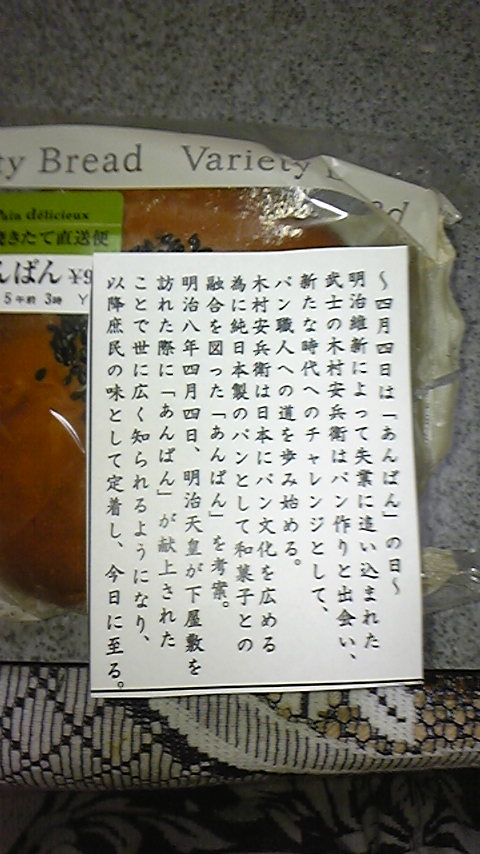 ty Bread Variety
ain délicieux
焼きたて直送便
んぱん ¥9
5 午前 3時 Y
〜四月四日は「あんぱん」の日〜
明治維新によって失業に追い込まれた
武士の木村安兵衛はパン作りと出会い、
新たな時代へのチャレンジとして、
パン職人への道を歩み始める。
木村安兵衛は日本にパン文化を広める
為に純日本製のパンとして和菓子との
融合を図った「あんぱん」を考案。
明治八年四月四日、明治天皇が下屋敷を
訪れた際に「あんぱん」が献上された
ことで世に広く知られるようになり、
以降庶民の味として定着し、今日に至る。